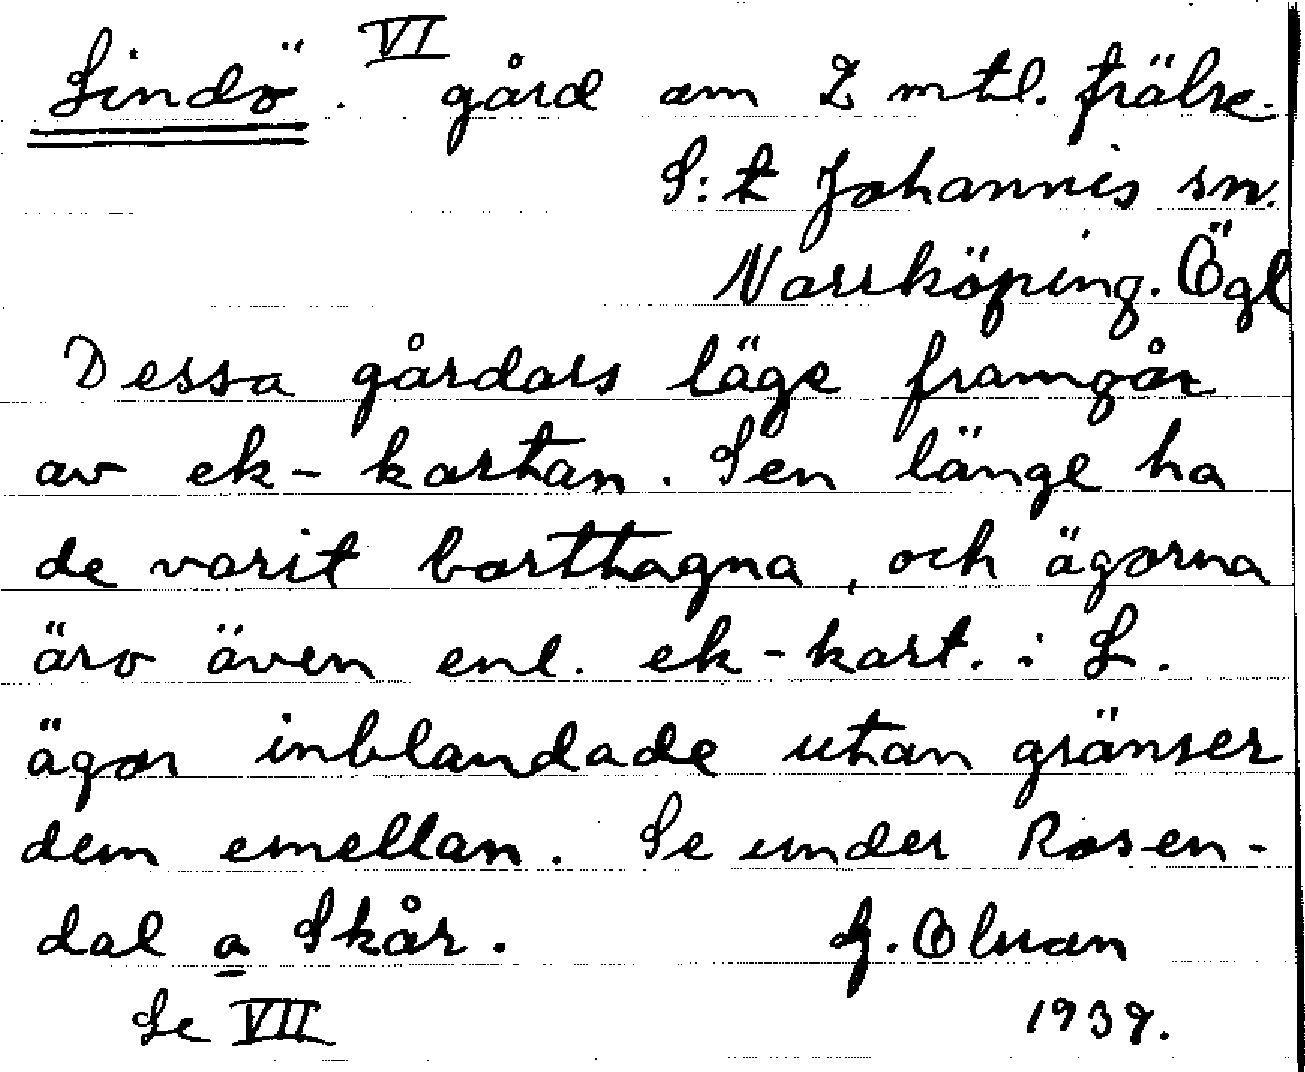 Lindö. VI gård om 2 mtl. frälse.
S:t Johannis sn.
Norrköping. Ögl
Dessa gårdars läge framgår
av ek-kartan. Sen länge ha
de varit borttagna, och ägorna
äro även enl. ek-kart. i L.
ägor inblandade utan gränser
dem emellan. Se under Rosen-
dal a Skår. G. Olson
Se VII 1939.